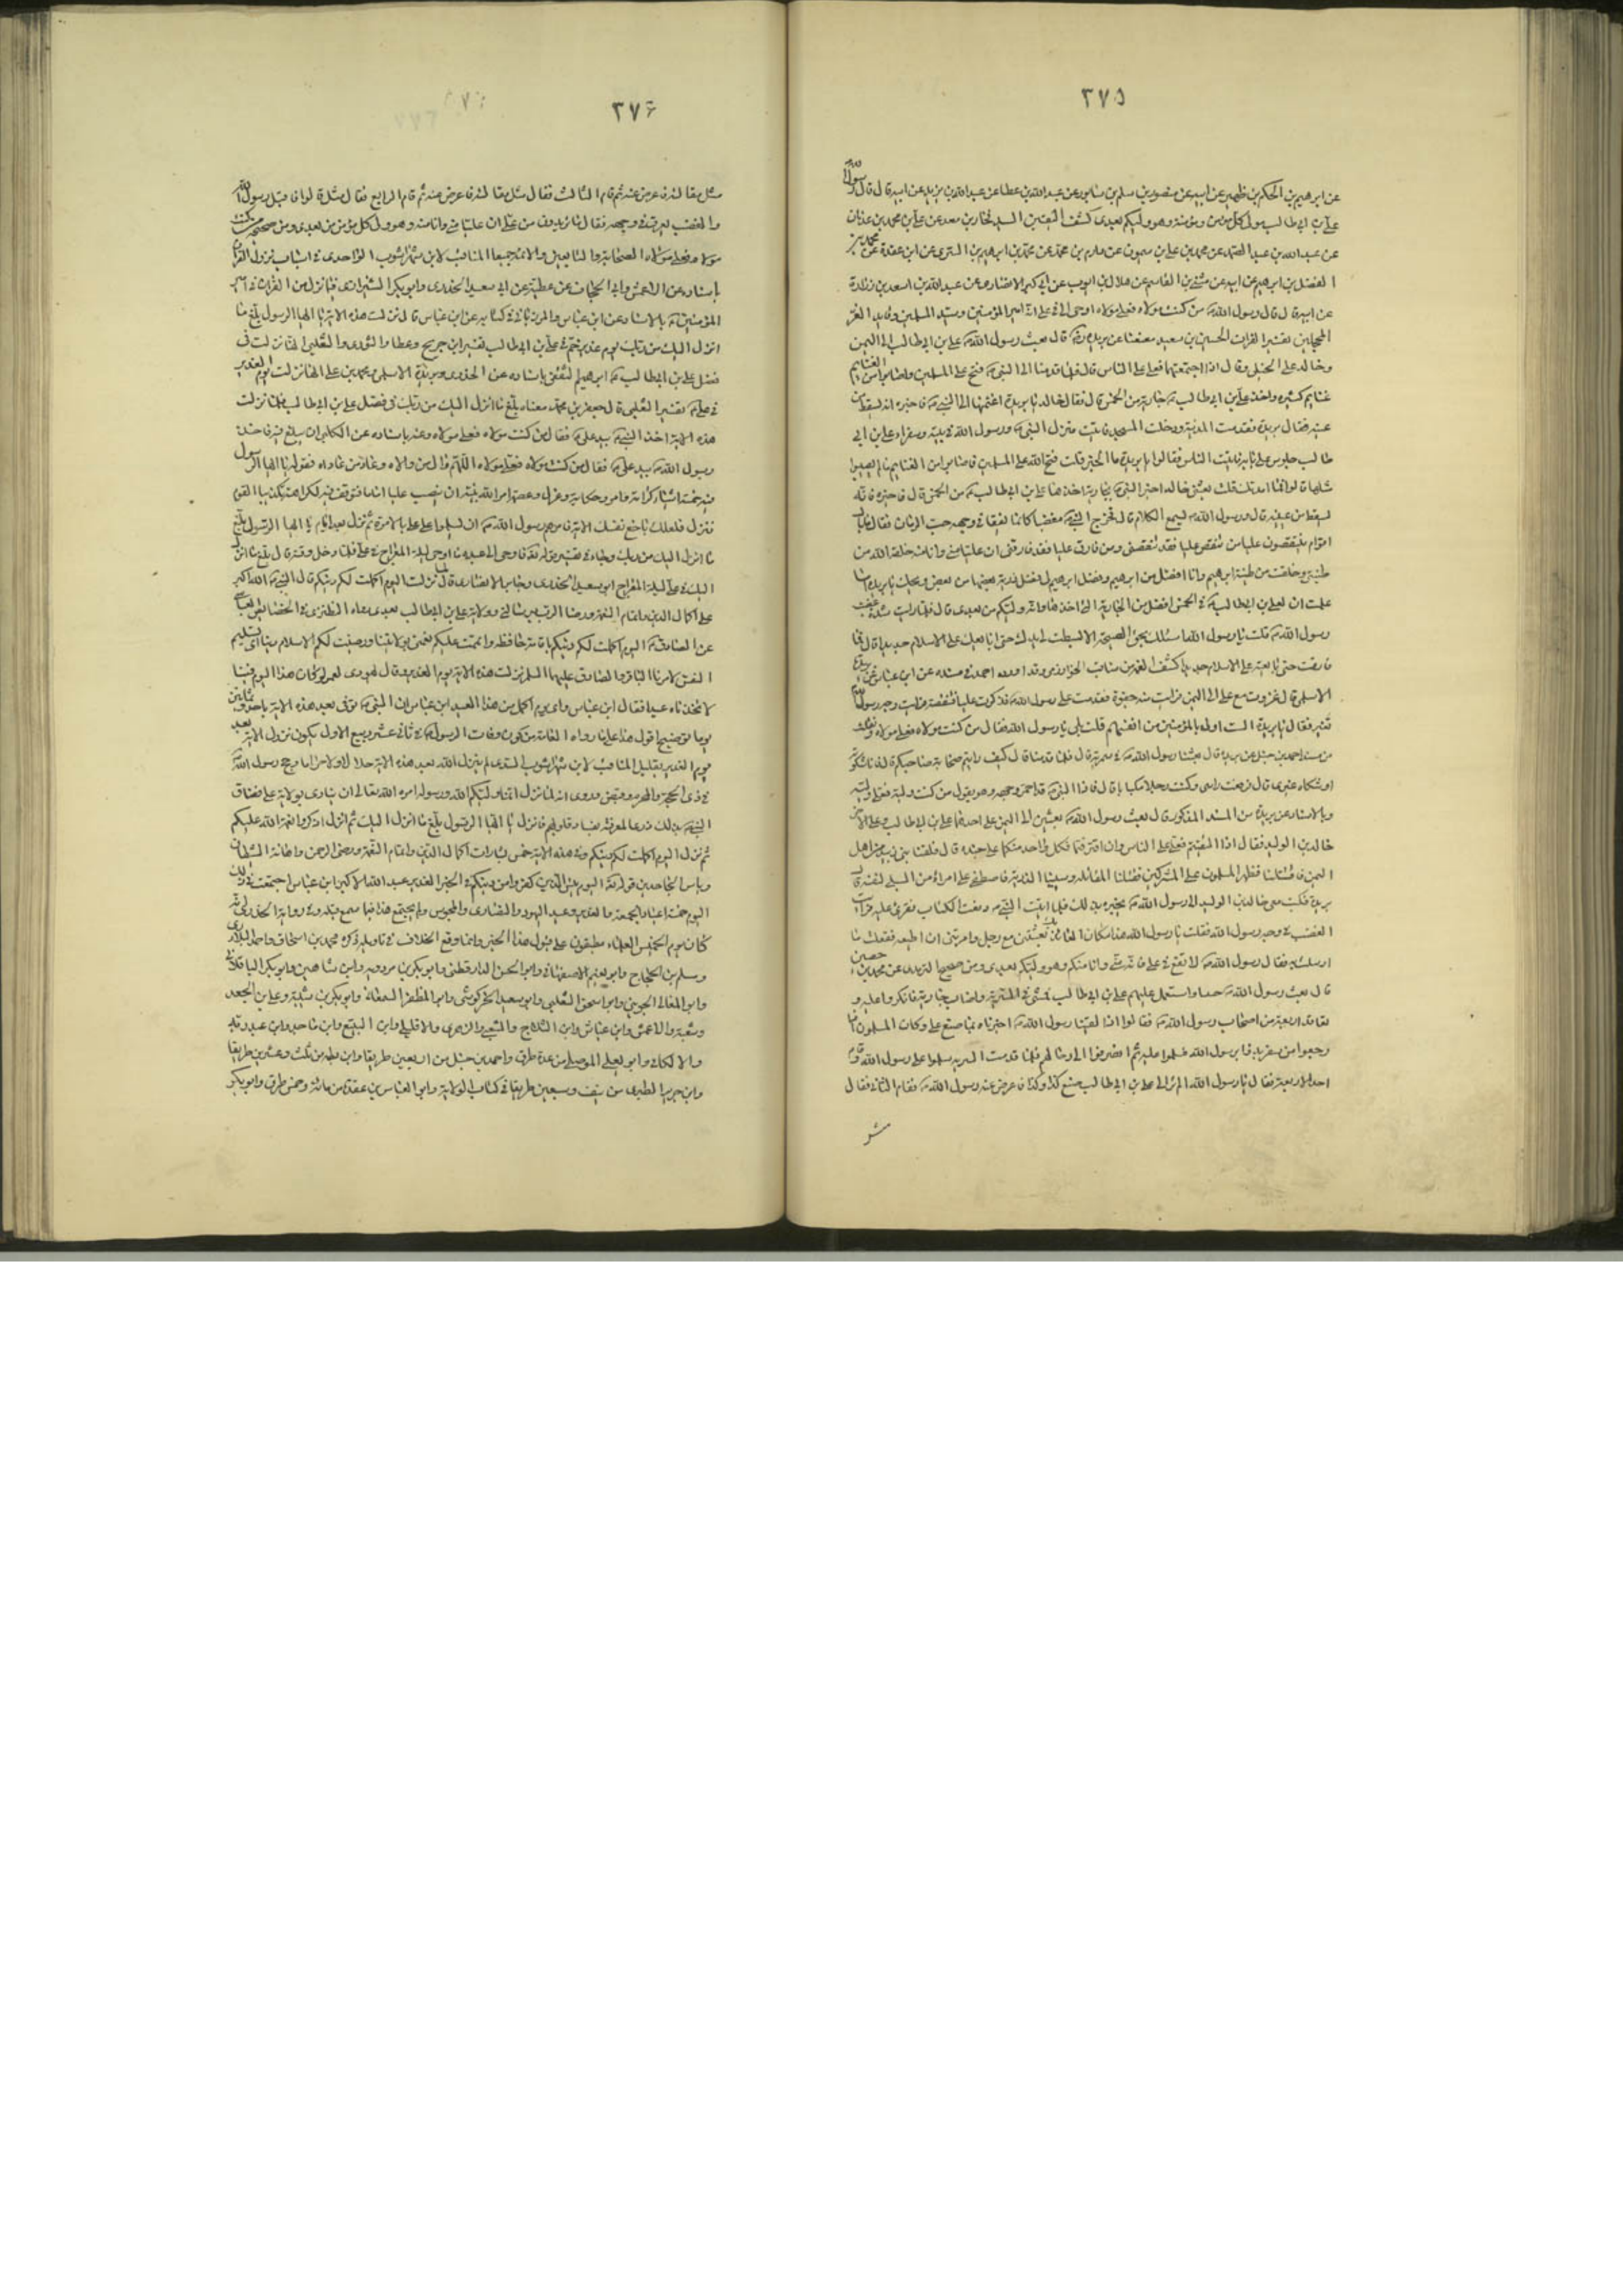 ٢٧٥
عن ابرهيم بن الحكم بن ظهير عن ابيه عن منصور بن سلم بن سابور عن عبد الله بن عطا عن عبد الله بن بريد عن ابيه قال قال رسول الله
علي بن ابي طالب مولى كل مؤمن ومؤمنة وهو وليكم بعدي كشف اليقين السيد فخار بن معد عن علي بن محمد بن عدنان
عن عبد الله بن عبد الصمد عن محمد بن علي بن ميمون عن دارم بن محمد عن محمد بن ابرهيم بن السري عن ابن عقدة عن محمد بن
الفضل بن ابرهيم عن ابيه عن مثنى بن القاسم عن هلال بن ايوب عن ابي كثير الانصاري عن عبد الله بن اسعد بن زرارة
عن ابيه قال قال رسول الله من كنت مولاه فعلي مولاه اوحي الي في علي انه امير المؤمنين وسيد المسلمين وقايد الغر
المحجلين تفسير الفرات الحسين بن سعيد معنعنا عن بريدة قال بعث رسول الله علي بن ابي طالب الى اليمن
وخالد على الخيل وقال اذا اجتمعتما فعلي على الناس قال فلما قدمنا الى النبي فتح على المسلمين واصابوا من الغنايم
غنايم كثيرة واخذ علي بن ابي طالب جارية من الخمس قال فقال خالد يا بريدة اغتنمها الى النبي فاخبره انه يسقط من
عينه فقال بريدة فقدمت المدينة ودخلت المسجد فاتيت منزل النبي ورسول الله في بيته وسفراء علي بن ابي
طالب جلوس على بابه فاتيت الناس فقالوا يا بريدة ما الخبر قلت فتح الله على المسلمين فاصابوا من الغنايم ما لم يصيبوا
مثلها قالوا فما اقدمك قلت بعثني خالد اخبر النبي بجارية اخذها علي بن ابي طالب من الخمس قال فاخبره فانه
يسقط من عينه قال ورسول الله يسمع الكلام قال فخرج النبي مغضبا كانما يفقأ في وجهه حب الرمان فقال ما بال
اقوام ينتقصون عليا من تنقص عليا فقد تنقصني ومن فارق عليا فقد فارقني ان عليا مني وانا منه خلقه الله من
طينتي وخلقت من طينة ابرهيم وانا افضل من ابرهيم وفضل ابرهيم لي فضل ذرية بعضها من بعض ويحك يا بريدة اما
علمت ان لعلي بن ابي طالب في الخمس افضل من الجارية التي اخذها وانه وليكم من بعدي قال فلما رايت شدة غضب
رسول الله قلت يا رسول الله اسئلك بحق الصحبة الا بسطت لي يدك حتى ابايعك على الاسلام جديدا قال فما
فارقت حتى بايعته على الاسلام جديدا كشف الغمة من مناقب الخوارزمي وقد اورده احمد في مسنده عن ابن عباس عن بريدة
الاسلمي قال غزوت مع علي الى اليمن فرايت منه جفوة فقدمت على رسول الله فذكرت عليا فتنقصته فرايت وجه رسول الله
تغير فقال يا بريدة الست اولى بالمؤمنين من انفسهم قلت بلى يا رسول الله فقال من كنت مولاه فعلي مولاه
من مسند احمد بن حنبل عن بريدة قال بعثنا رسول الله في سرية قال فلما قدمنا قال كيف رايتم صحابة صاحبكم قال فاما شكوته
او شكاه غيري قال فرفعت راسي وكنت رجلا مكبابا قال فاذا النبي قد احمر وجهه وهو يقول من كنت وليه فعلي وليه
وبالاسناد عن بريدة من المسند المذكور قال بعث رسول الله بعثين الى اليمن على احدهما علي بن ابي طالب وعلى الاخر
خالد بن الوليد فقال اذا التقيتم فعلي على الناس وان افترقتما فكل واحد منكما على جنده قال فلقينا بني زبيد من اهل
اليمن فاقتتلنا فظهر المسلمون على المشركين فقتلنا المقاتلة وسبينا الذرية فاصطفى علي امراة من السبي لنفسه قال
بريدة فكتب معي خالد بن الوليد الى رسول الله يخبره بذلك فلما اتيت النبي دفعت الكتاب فقرئ عليه فرايت
الغضب في وجه رسول الله فقلت يا رسول الله هذا مكان العائذ بك بعثتني مع رجل وامرتني ان اطيعه ففعلت ما
ارسلت به فقال رسول الله لا تقع في علي فانه مني وانا منه وهو وليكم بعدي ومن صحيح الترمذي عن عمران بن حصين
قال بعث رسول الله جيشا واستعمل عليهم علي بن ابي طالب فمشى في السرية واصاب جارية فانكروا عليه و
تعاقد اربعة من اصحاب رسول الله فقالوا اذا لقينا رسول الله اخبرناه بما صنع علي وكان المسلمون اذا
رجعوا من سفر بدءوا برسول الله فسلموا عليه ثم انصرفوا الى رحالهم فلما قدمت السرية سلموا على رسول الله فقام
احد الاربعة فقال يا رسول الله الم تر الى علي بن ابي طالب صنع كذا وكذا فاعرض عنه رسول الله فقام الثاني فقال
٢٧۶
مثل مقالته فاعرض عنه ثم قام الثالث فقال مثل مقالته فاعرض عنه ثم قام الرابع فقال مثل ما قالوا فاقبل رسول الله
والغضب يعرف في وجهه فقال ما تريدون من علي ان عليا مني وانا منه وهو ولي كل مؤمن من بعدي ومن صحيحه من كنت
مولاه فعلي مولاه الصحابة والتابعين والائمة جميعا المناقب لابن شهراشوب الواحدي في اسباب نزول القران
باسناده عن الاعمش وابي الحجاف عن عطية عن ابي سعيد الخدري وابو بكر الشيرازي فيما نزل من القران في امير
المؤمنين بالاسناد عن ابن عباس والمرزباني في كتابه عن ابن عباس قال نزلت هذه الاية يا ايها الرسول بلغ ما
انزل اليك من ربك يوم غدير خم في علي بن ابي طالب تفسير ابن جريح وعطا والثوري والثعلبي انها نزلت في
فضل علي بن ابي طالب ابرهيم الثقفي باسناده عن الخدري وبريدة الاسلمي ومحمد بن علي انها نزلت يوم الغدير
في علي تفسير الثعلبي قال جعفر بن محمد معناه بلغ ما انزل اليك من ربك في فضل علي بن ابي طالب فلما نزلت
هذه الاية اخذ النبي بيد علي فقال من كنت مولاه فعلي مولاه وعنه باسناده عن الكلبي ان يبلغ فيه فاخذ
رسول الله بيد علي فقال من كنت مولاه فعلي مولاه اللهم وال من والاه وعاد من عاداه فقوله يا ايها الرسول
فيه خمسة اشياء كرامة وامر وحكاية وعزل وعصمة امر الله نبيه ان ينصب عليا اماما فتوقف فيه لكراهته تكذيب القوم
فنزل فلعلك باخع نفسك الاية فامرهم رسول الله ان يسلموا على علي بالامرة ثم نزل بعد ايام يا ايها الرسول بلغ
ما انزل اليك من ربك وجاء في تفسير قوله تعالى فاوحى الى عبده ما اوحى ليلة المعراج في علي فلما دخل وقته قال بلغ ما انزل
اليك في علي ليلة المعراج ابو سعيد الخدري وجابر الانصاري قالا لما نزلت اليوم اكملت لكم دينكم قال النبي الله اكبر
على اكمال الدين واتمام النعمة ورضا الرب برسالتي وولاية علي بن ابي طالب بعدي رواه النطنزي في الخصايص العياشي
عن الصادق اليوم اكملت لكم دينكم باقامة حافظه واتممت عليكم نعمتي بولايتنا ورضيت لكم الاسلام دينا اي تسليم
النفس لامرنا الباقر والصادق عليهما السلم نزلت هذه الاية يوم الغدير وقال يهودي لعمر لو كان هذا اليوم فينا
لاتخذناه عيدا فقال ابن عباس واي يوم اكمل من هذا العيد ابن عباس ان النبي توفي بعد هذه الاية باحد وثمانين
يوما توضيح اقول هذا على ما رواه العامة من كون وفات الرسول في ثاني عشر ربيع الاول يكون نزول الاية بعد
يوم الغدير بقليل المناقب لابن شهراشوب السدي لم ينزل الله بعد هذه الاية حلالا ولا حراما وحج رسول الله
في ذي الحجة والمحرم وقبض وروي انه لما نزل انما وليكم الله ورسوله امره الله تعالى ان ينادي بولاية علي فضاق
النبي بذلك ذرعا لمعرفته بفساد قلوبهم فانزل يا ايها الرسول بلغ ما انزل اليك ثم انزل اذكروا نعمة الله عليكم
ثم نزل اليوم اكملت لكم دينكم وفي هذه الاية خمس بشارات اكمال الدين واتمام النعمة ورضى الرحمن واهانة الشيطان
وياس الجاحدين قوله تعالى اليوم يئس الذين كفروا من دينكم في الخبر الغدير عيد الله الاكبر ابن عباس اجتمعت في ذلك
اليوم خمسة اعياد الجمعة والغدير وعيد اليهود والنصارى والمجوس ولم يجتمع هذا فيما سمع قبله وفي رواية الخدري انه
كان يوم الخميس العلماء مطبقون على قبول هذا الخبر وانما وقع الخلاف في تاويله ذكره محمد بن اسحاق واحمد البلاذري
ومسلم بن الحجاج وابو نعيم الاصفهاني وابو الحسن الدارقطني وابو بكر بن مردويه وابن شاهين وابو بكر الباقلاني
وابو المعالي الجويني وابو اسحق الثعلبي وابو سعيد الخركوشي وابو المظفر السمعاني وابو بكر بن شيبة وعلي بن الجعد
وشعبة والاعمش وابن عباش وابن الثلاج والشعبي والزهري والاقليشي وابن البيع وابن ماجة وابن عبد ربه
والالكاني وابو يعلى الموصلي من عدة طرق واحمد بن حنبل من اربعين طريقا وابن بطة من ثلث وعشرين طريقا
وابن جرير الطبري من نيف وسبعين طريقا في كتاب الولاية وابو العباس بن عقدة من مائة وخمس طرق وابو بكر